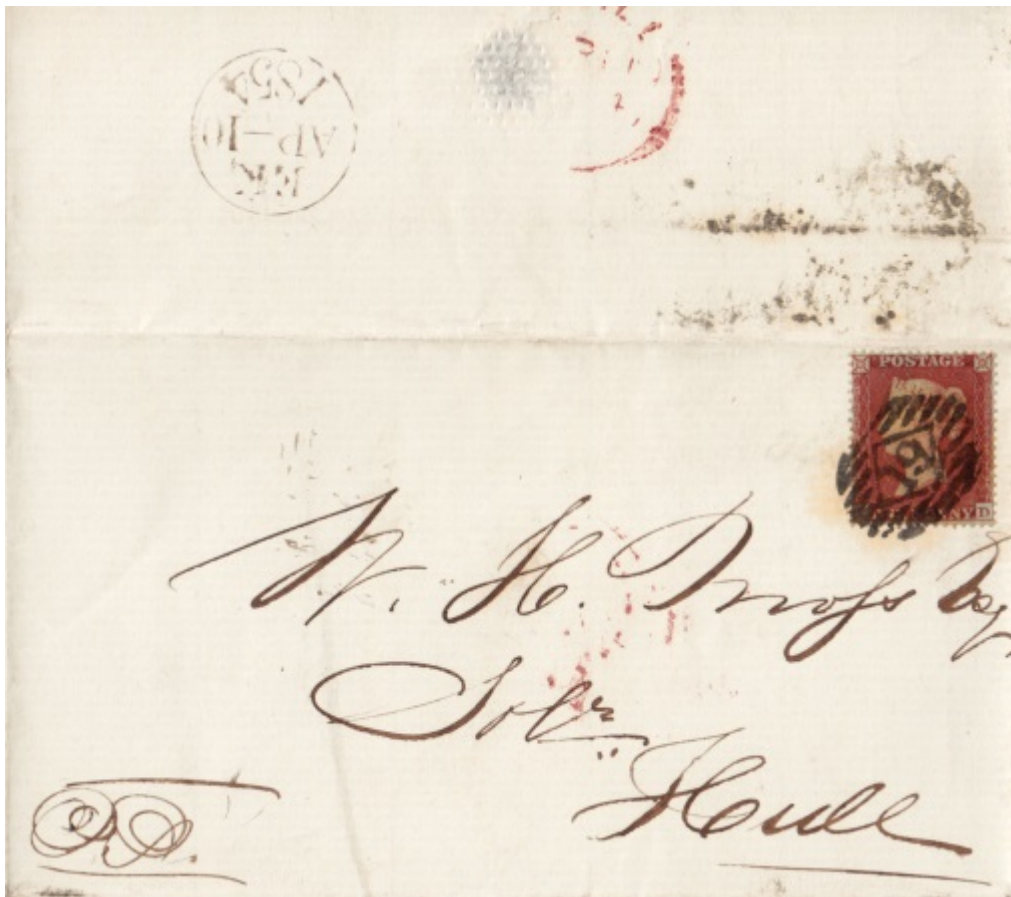 EK
AP-10
1854
POSTAGE
D
W. H. Moss Esq
Solr.
Hull